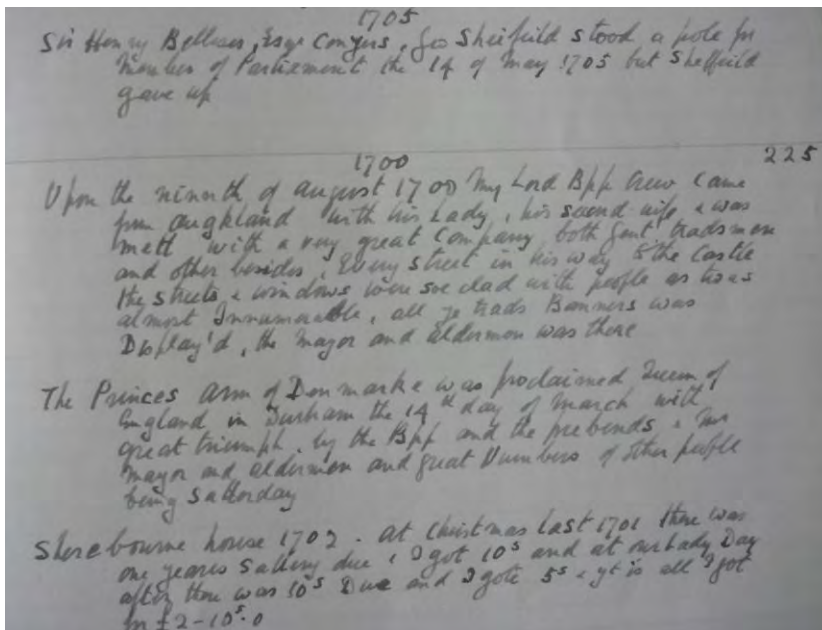 1705
Sir Henry Bellises, Esqr Conyers, Geo Sheifield stood a pole for
Member of Parliament the 14 of May 1705 but Sheffield
gave up
1700
225
Upon the ninnth of august 1700 My Lord Bpp Crew Came
from aughland with his Lady, his second wife & was
mett with a very great Company both Gent tradsmen
and other besides, Every street in his way to the Castle
the streets & windows were soe clad with people as twas
almost Innumerable, all ye trads Banners was
Display'd, the Mayor and aldermen was there
The Princes arm of Denmarke was proclaimed Queen of
England in Durham the 14th day of March with
great triumph, by the Bpp and the prebends & Mr
Mayor and aldermen and great Numbers of other people
being Satterday
Sherebourne house 1702. At Christmas last 1701 there was
one yeares Sallery due, I got 10s and at our Lady Day
after there was 10s Due and I gote 5s & yt is all I got
for £2-10s.0